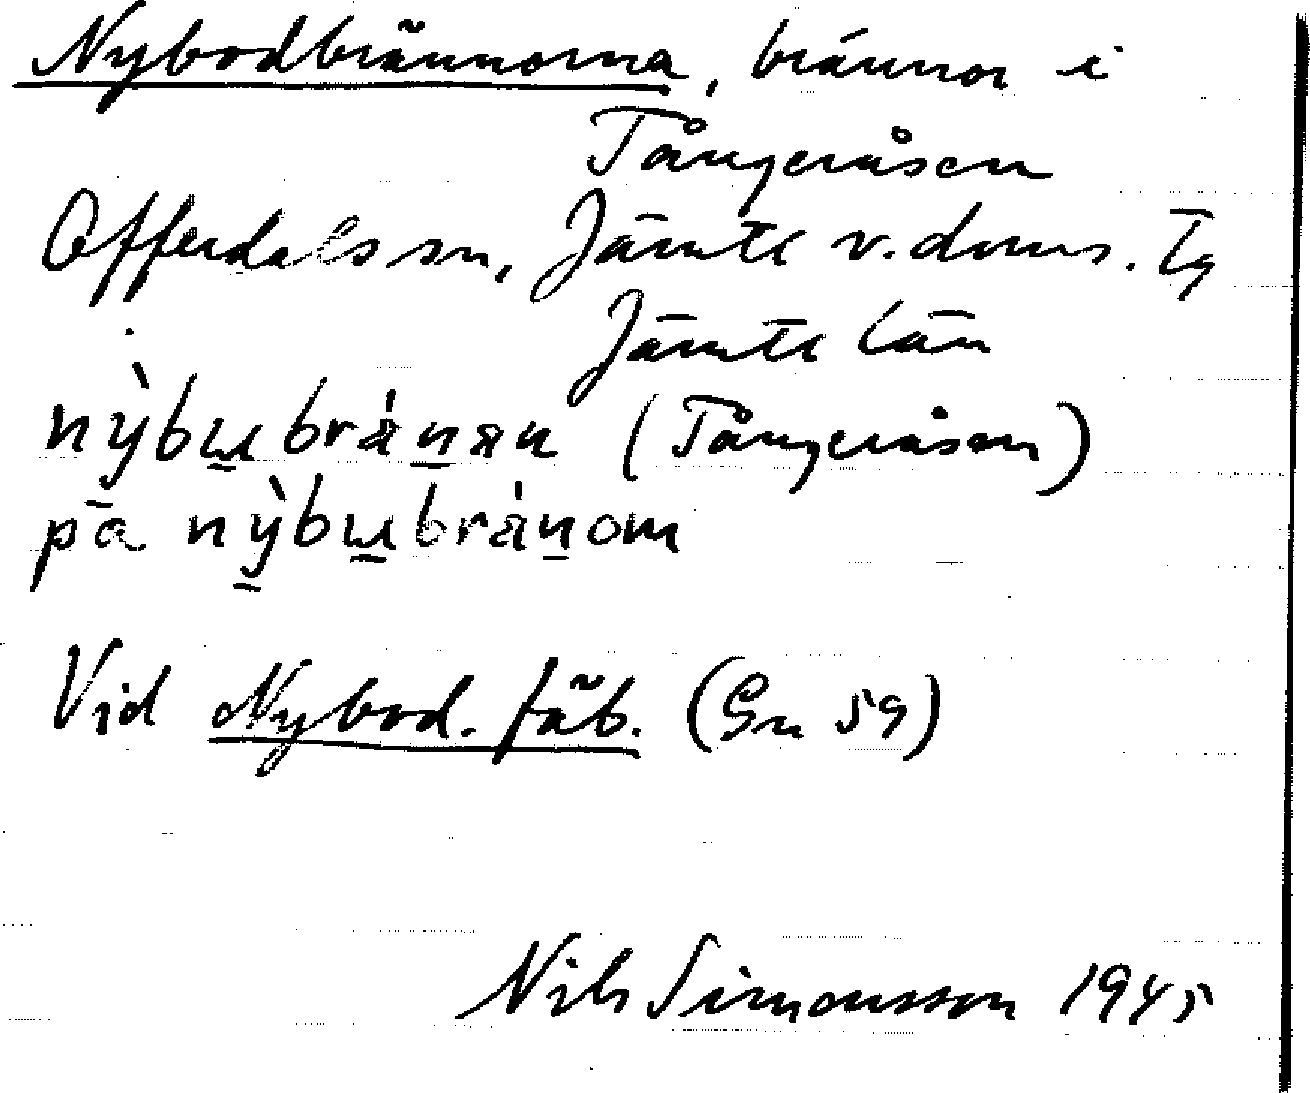 Nybodbrännorna, brännor i
Tångeråsen
Offerdals sn, Jämtl v. doms. Tg
Jämtl län
nỳbɯbránan (Tångeråsen)
på nỳbɯbránom
Vid Nybod. fäb. (Gn 59)
Nils Simonsson 1945